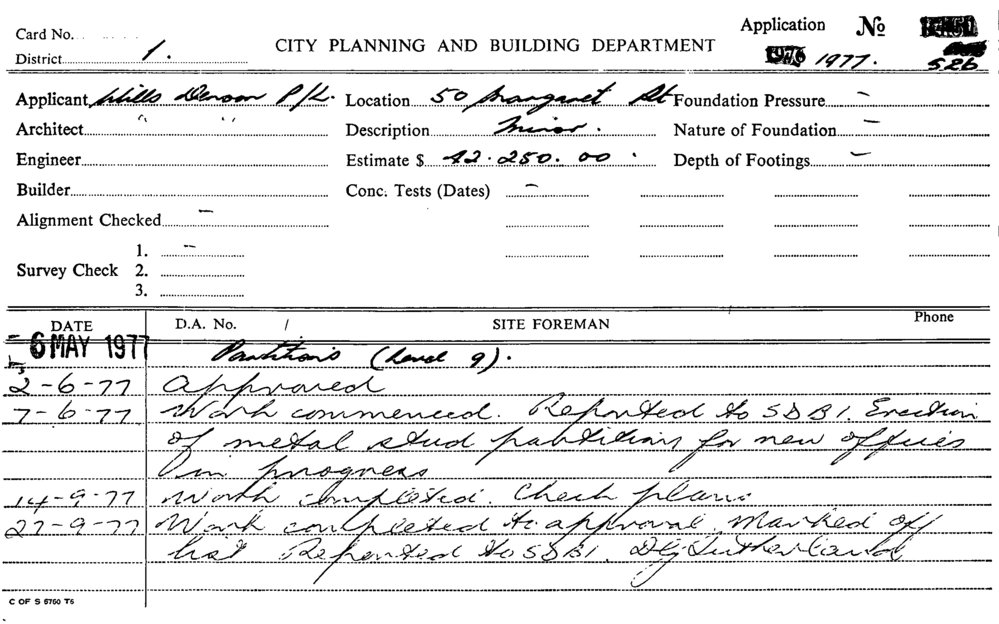 Card No.
District 1.
CITY PLANNING AND BUILDING DEPARTMENT
Application No
1977. 526
Applicant Wills Denoon P/L. Location 50 Margaret St Foundation Pressure –
Architect " " Description Minor. Nature of Foundation –
Engineer Estimate $ 42.250.00. Depth of Footings –
Builder Conc. Tests (Dates) –
Alignment Checked –
Survey Check 1. –
2.
3.
DATE D.A. No. / SITE FOREMAN Phone
- 6 MAY 1977 Partitions (Level 9).
2-6-77 Approved
7-6-77 Work commenced. Reported to SDBI. Erection
of metal stud partitions for new offices
in progress
14-9-77 Work completed. Check plans
27-9-77 Work completed to approval. Marked off
list Reported to SDBI. Sutherland
C OF S 6760 T5